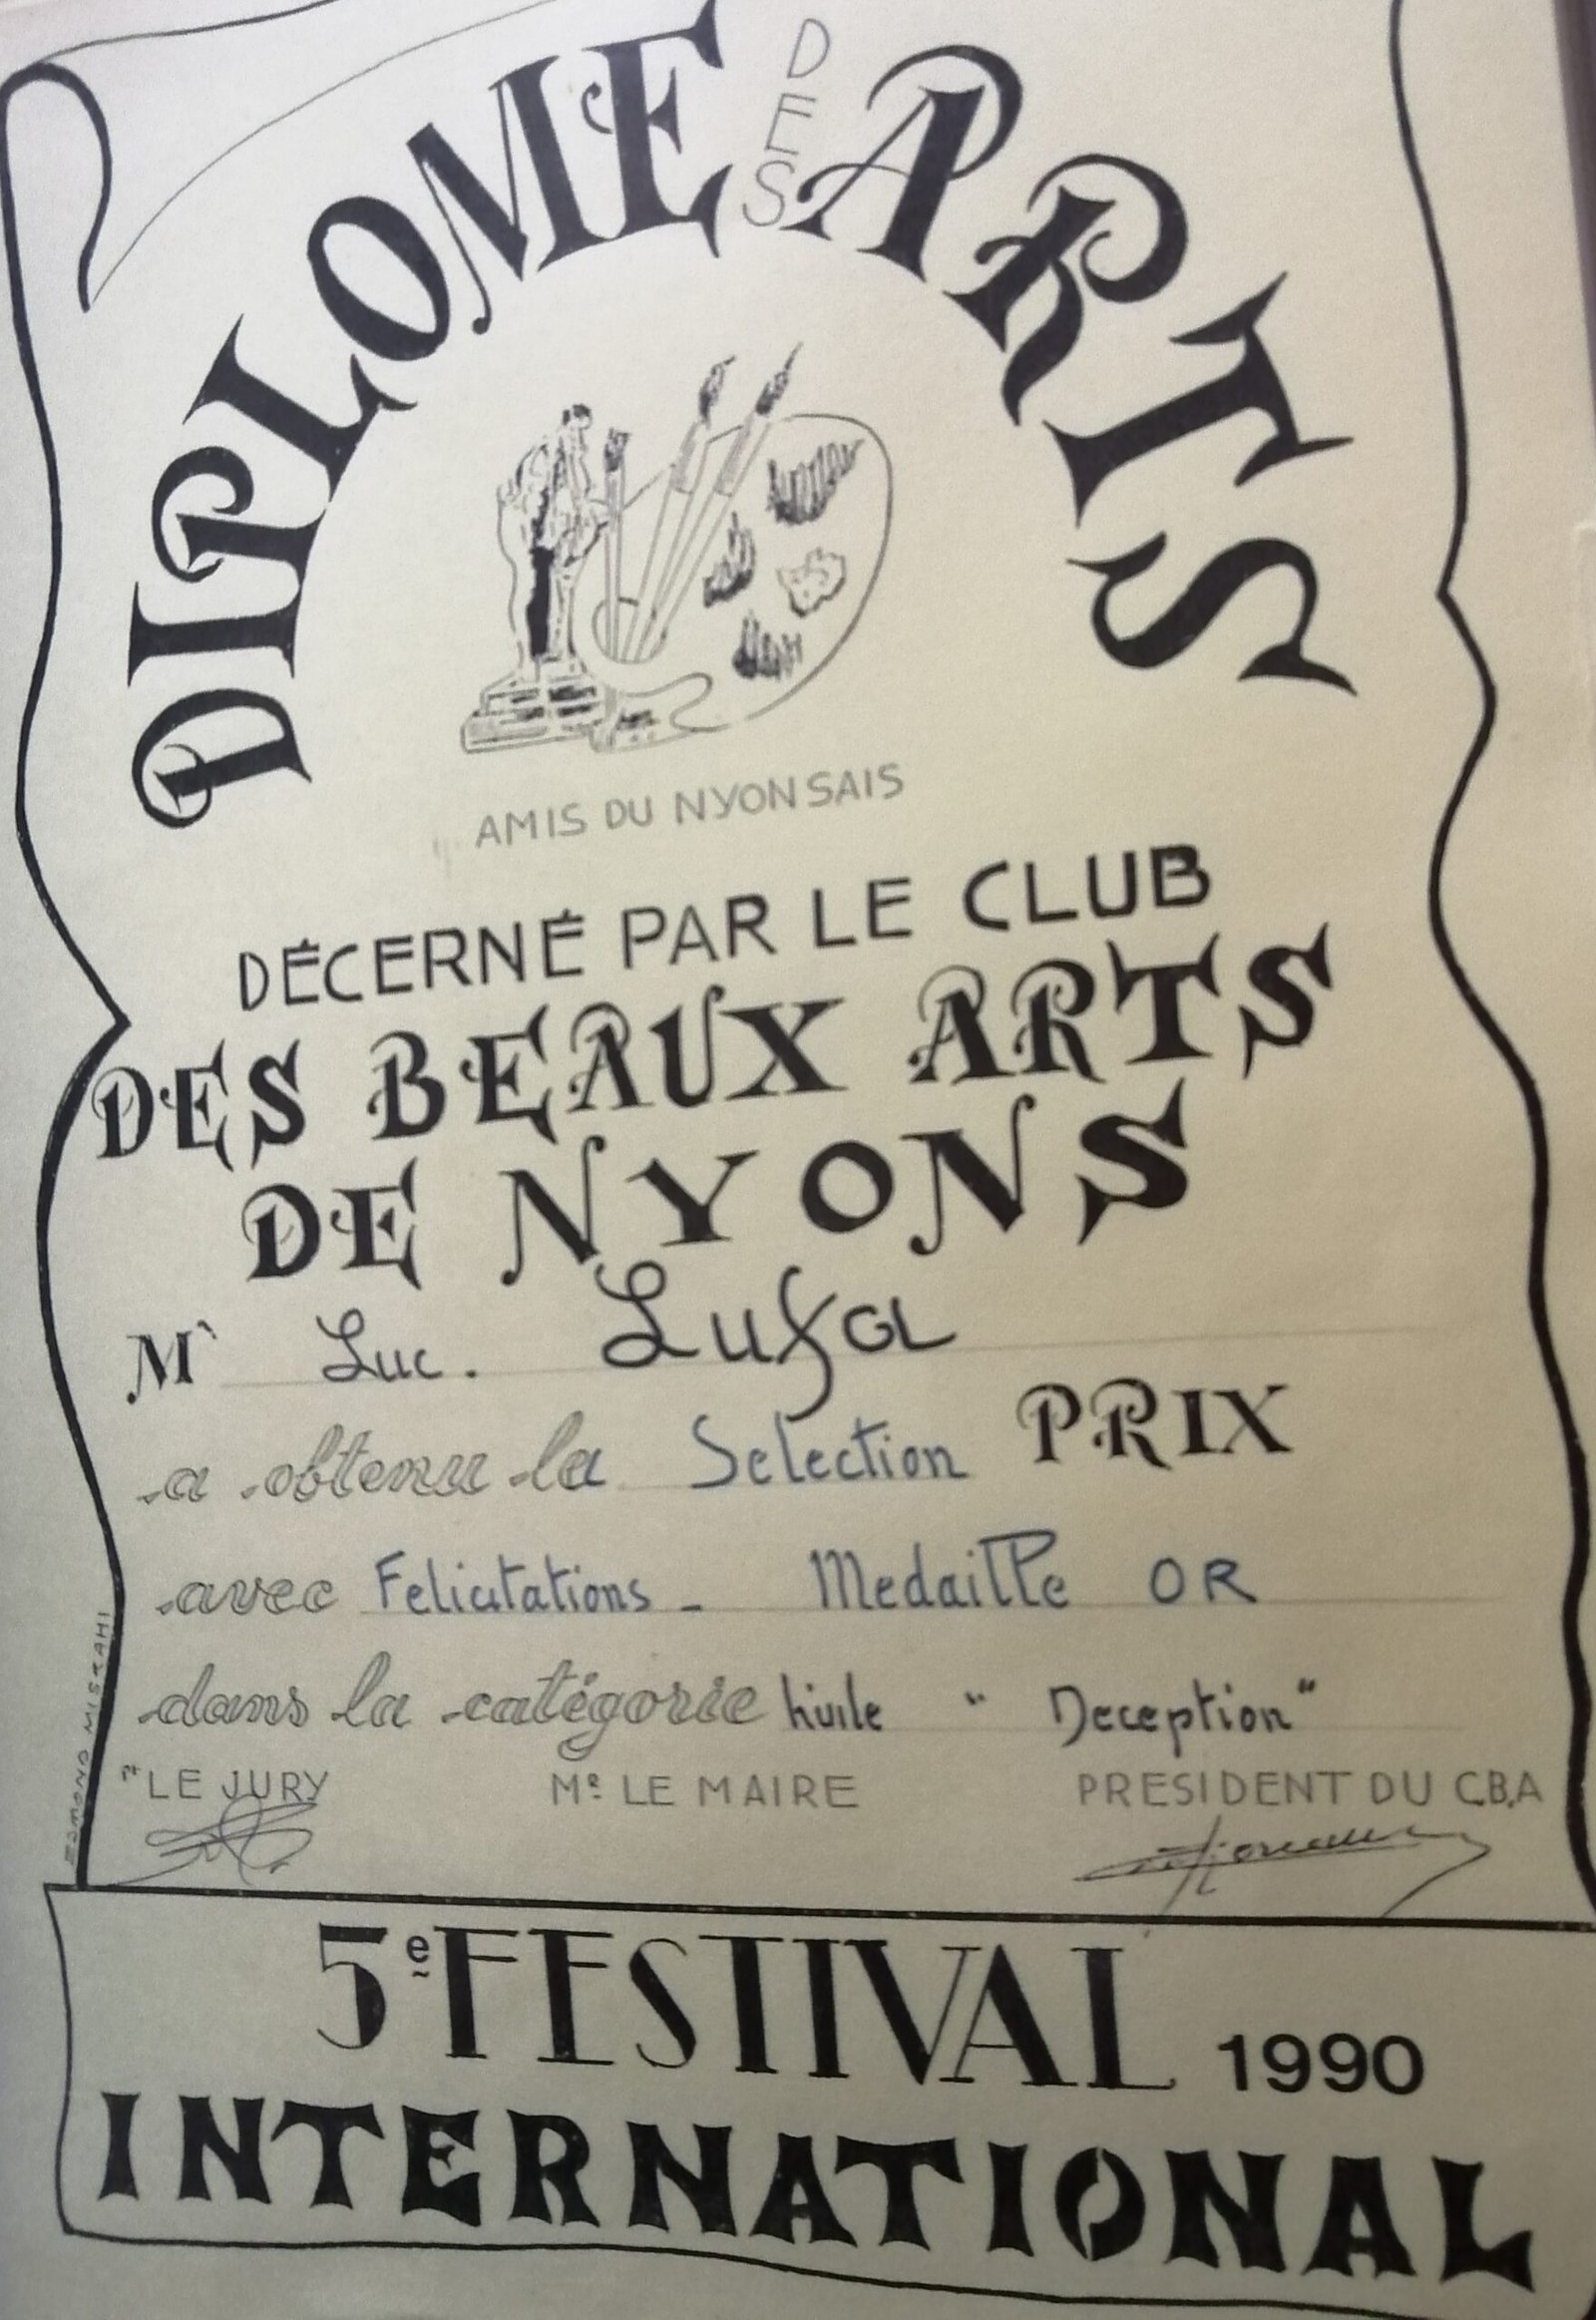 DIPLOME DES ARTS
AMIS DU NYONSAIS
DÉCERNÉ PAR LE CLUB
DES BEAUX ARTS
DE NYONS
Mʳ Luc. Lufal
a obtenu la Selection PRIX
avec Felicitations - Medaille OR
dans la catégorie huile " Deception "
LE JURY Mʳ LE MAIRE PRESIDENT DU C.B.A
EDMOND MISRAHI
5e FESTIVAL 1990
INTERNATIONAL